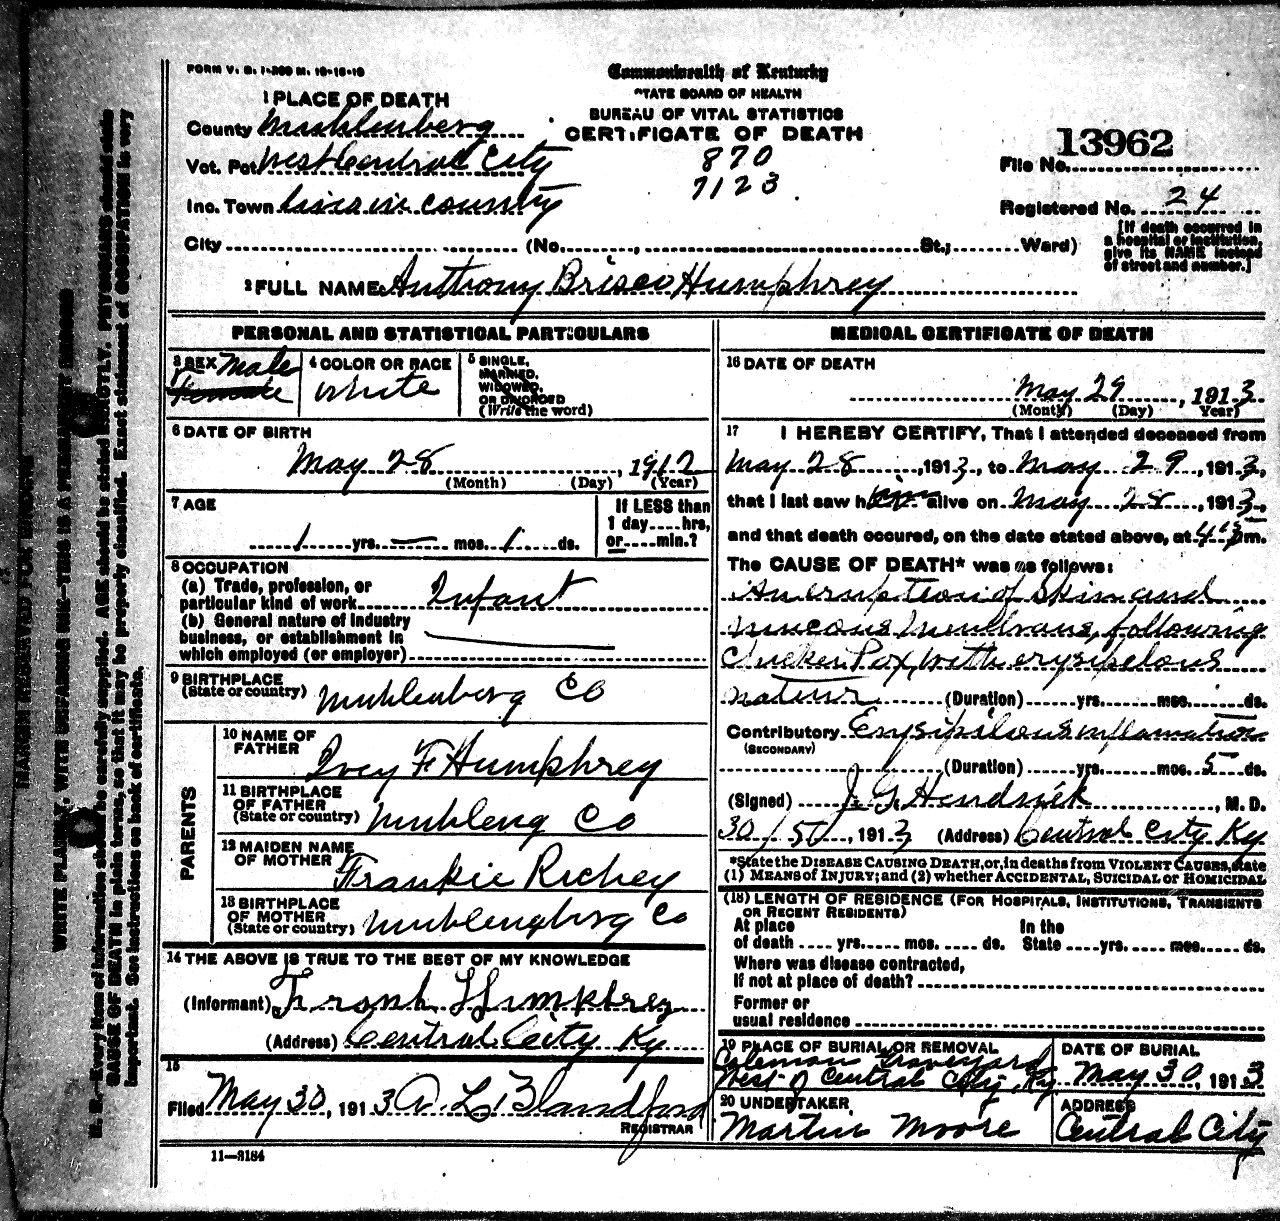 FORM V. S. 1-200 M. 10-16-10
Commonwealth of Kentucky
STATE BOARD OF HEALTH
BUREAU OF VITAL STATISTICS
CERTIFICATE OF DEATH
870
7123
1 PLACE OF DEATH
County Muhlenberg
Vot. Pct West Central City
Inc. Town lives in county
City (No. , St.; Ward)
13962
File No.
Registered No. 24
[If death occurred in
a hospital or institution,
give its NAME instead
of street and number.]
2 FULL NAME Anthony Brisco Humphrey
PERSONAL AND STATISTICAL PARTICULARS
3 SEX Male
Female
4 COLOR OR RACE
white
5 SINGLE,
MARRIED,
WIDOWED,
OR DIVORCED
(Write the word)
6 DATE OF BIRTH
May 28 , 1912
(Month) (Day) (Year)
7 AGE
1 yrs. — mos. 1 ds.
If LESS than
1 day....hrs,
or....min.?
8 OCCUPATION
(a) Trade, profession, or
particular kind of work Infant
(b) General nature of industry
business, or establishment in
which employed (or employer)
9 BIRTHPLACE
(State or country) Muhlenberg Co
PARENTS
10 NAME OF
FATHER Ivey F Humphrey
11 BIRTHPLACE
OF FATHER
(State or country) Muhleng Co
12 MAIDEN NAME
OF MOTHER Frankie Richey
13 BIRTHPLACE
OF MOTHER
(State or country) Muhlengbrg Co
14 THE ABOVE IS TRUE TO THE BEST OF MY KNOWLEDGE
(Informant) Frank Humphrey
(Address) Central City Ky
15
Filed May 30, 1913 A L Blandford
REGISTRAR
11—3184
MEDICAL CERTIFICATE OF DEATH
16 DATE OF DEATH
May 29 , 1913
(Month) (Day) Year)
17 I HEREBY CERTIFY, That I attended deceased from
May 28 , 1913, to May 29, 1913,
that I last saw him alive on May 28, 1913,
and that death occured, on the date stated above, at m.
The CAUSE OF DEATH* was as follows:
An eruption of Skin and
mucous Membrans, following
Chicken Pox, with erysipelous
natur (Duration) yrs. mos. ds.
Contributory Erysipilous inflamation
(SECONDARY)
(Duration) yrs. mos. 5 ds.
(Signed) J. G. Hendrik , M. D.
30 /5 , 1913 (Address) Central City Ky
*State the DISEASE CAUSING DEATH, or, in deaths from VIOLENT CAUSES, state
(1) MEANS of INJURY; and (2) whether ACCIDENTAL, SUICIDAL or HOMICIDAL
(18) LENGTH OF RESIDENCE (FOR HOSPITALS, INSTITUTIONS, TRANSIENTS
OR RECENT RESIDENTS)
At place In the
of death .... yrs. mos. .... ds. State ....yrs. .... mos. ....ds.
Where was disease contracted,
If not at place of death?
Former or
usual residence
19 PLACE OF BURIAL OR REMOVAL
Coleman Graveyard
West of Central City, Ky
DATE OF BURIAL
May 30, 1913
20 UNDERTAKER
Martin Moore
ADDRESS
Central City
MARGIN RESERVED FOR BINDING
WRITE PLAINLY, WITH UNFADING INK—THIS IS A PERMANENT RECORD
N. B.—Every item of information should be carefully supplied. AGE should be stated EXACTLY. PHYSICIANS should state
CAUSE OF DEATH in plain terms, so that it may be properly classified. Exact statement of OCCUPATION is very
important. See instructions on back of certificate.